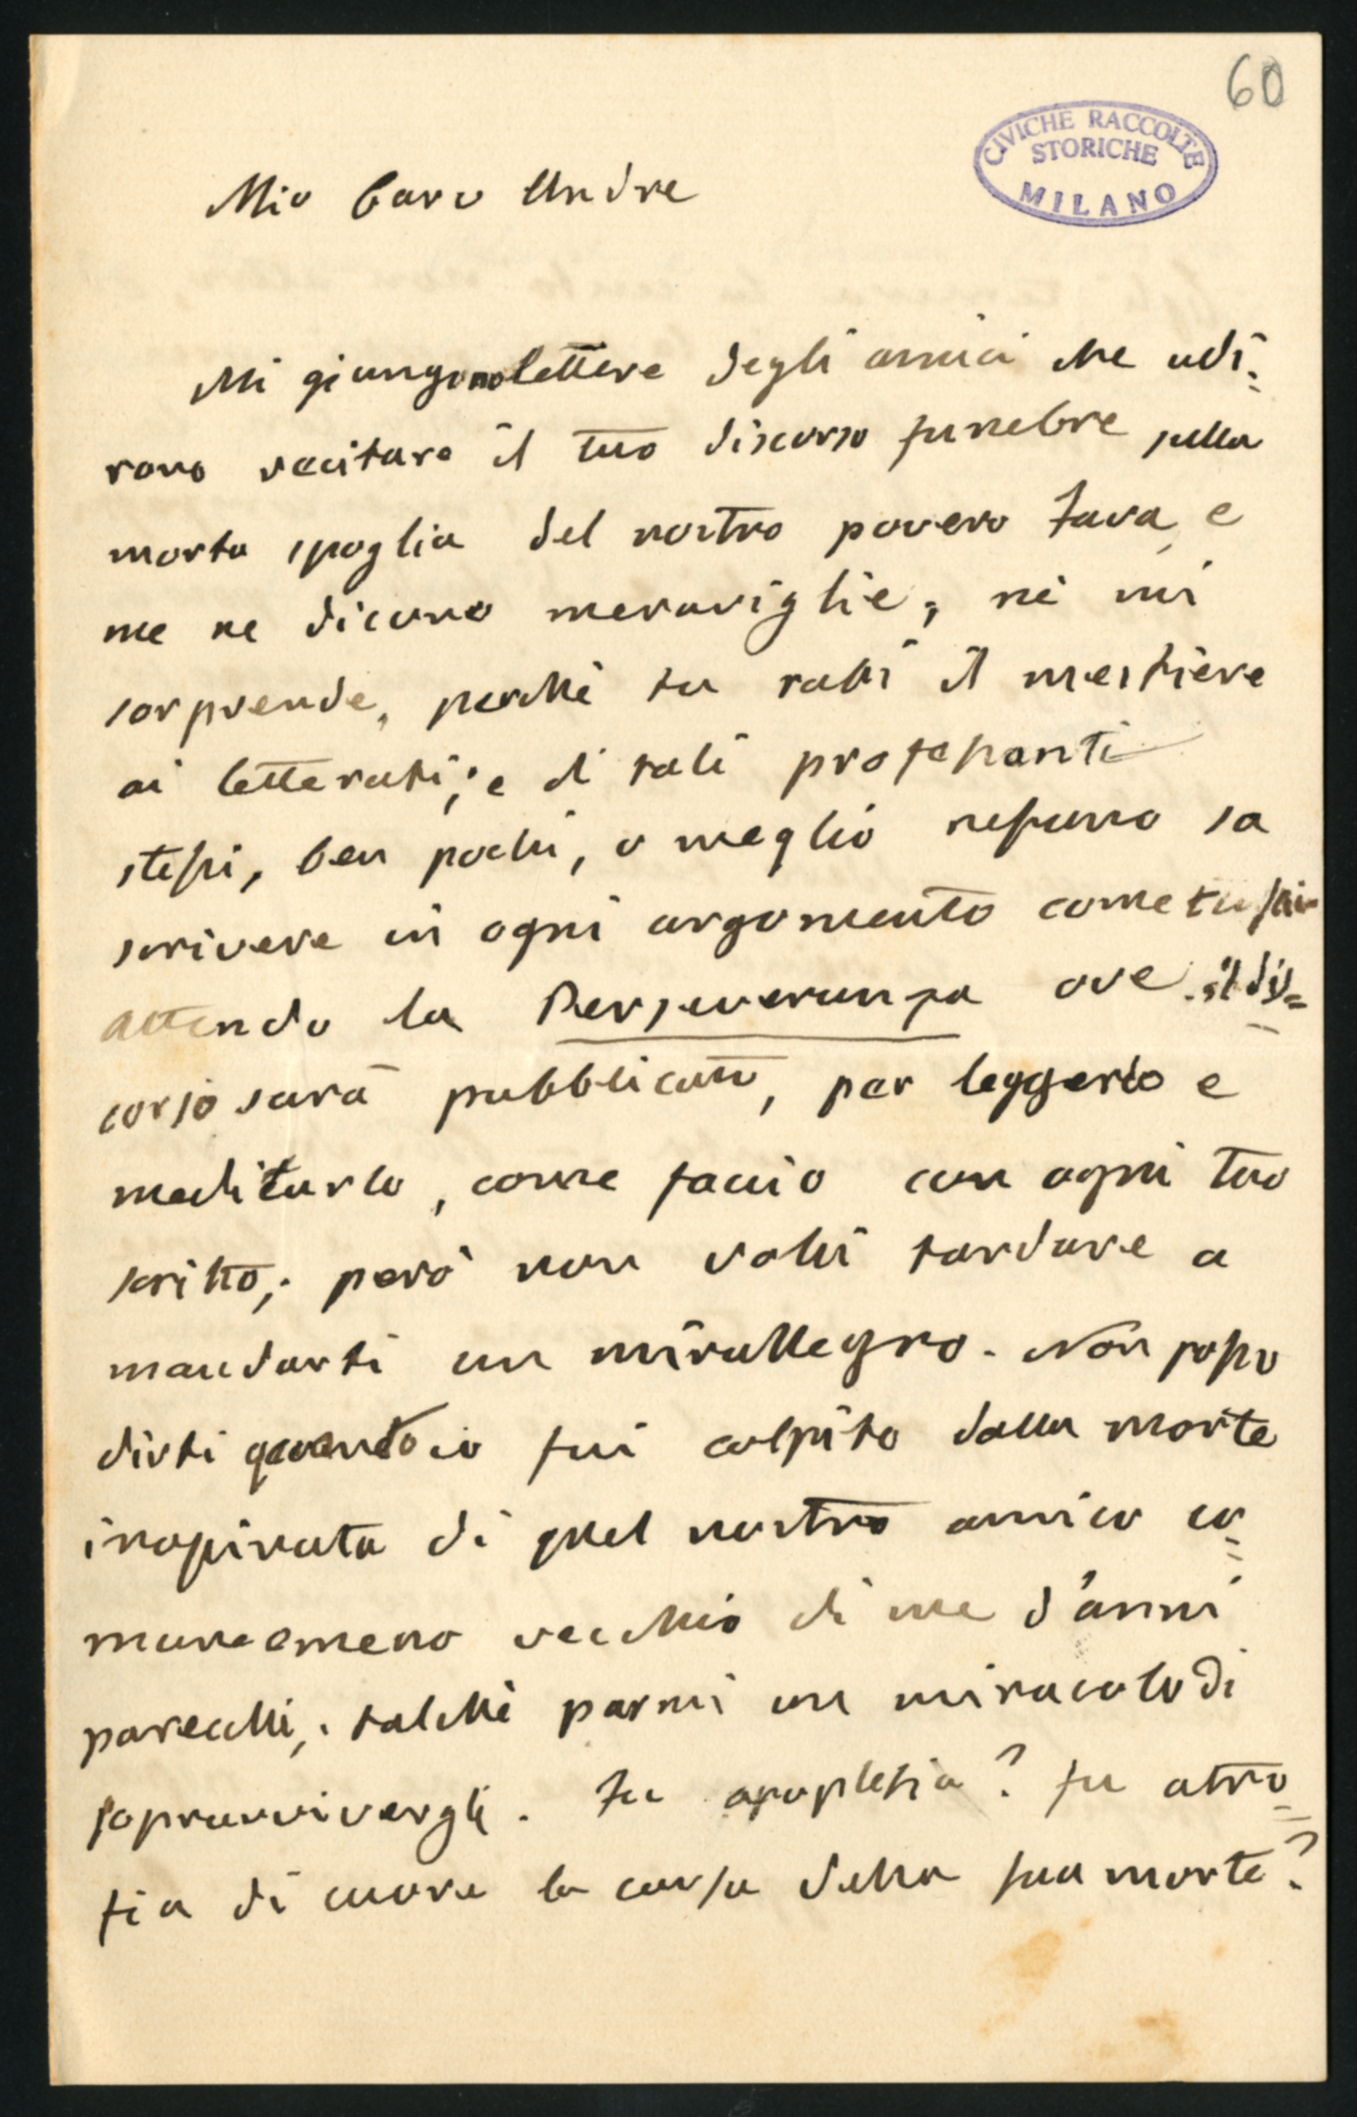 60
CIVICHE RACCOLTE
STORICHE
MILANO
Mio Caro Andre
Mi giungono lettere degli amici che udi=
rono recitare il tuo discorso funebre sulla
morta spoglia del nostro povero Fava, e
me ne dicono meraviglie; nè mi
sorprende, perchè tu rubi il mestiere
ai letterati; e di tali professanti
stessi, ben pochi, o meglio nessuno sa
scrivere in ogni argomento come tu sai
attendo la Perseveranza ove il dis=
corso sarà pubblicato, per leggerlo e
meditarlo, come faccio con ogni tuo
scritto; però non volli tardare a
mandarti un mirallegro. Non posso
dirti quanto io fui colpito dalla morte
inopinata di quel nostro amico co=
mune meno vecchio di me d'anni
parecchi; talchè parmi un miracolo di
sopravvivergli. Fu apoplesia? fu atro=
fia di cuore la causa della sua morte?